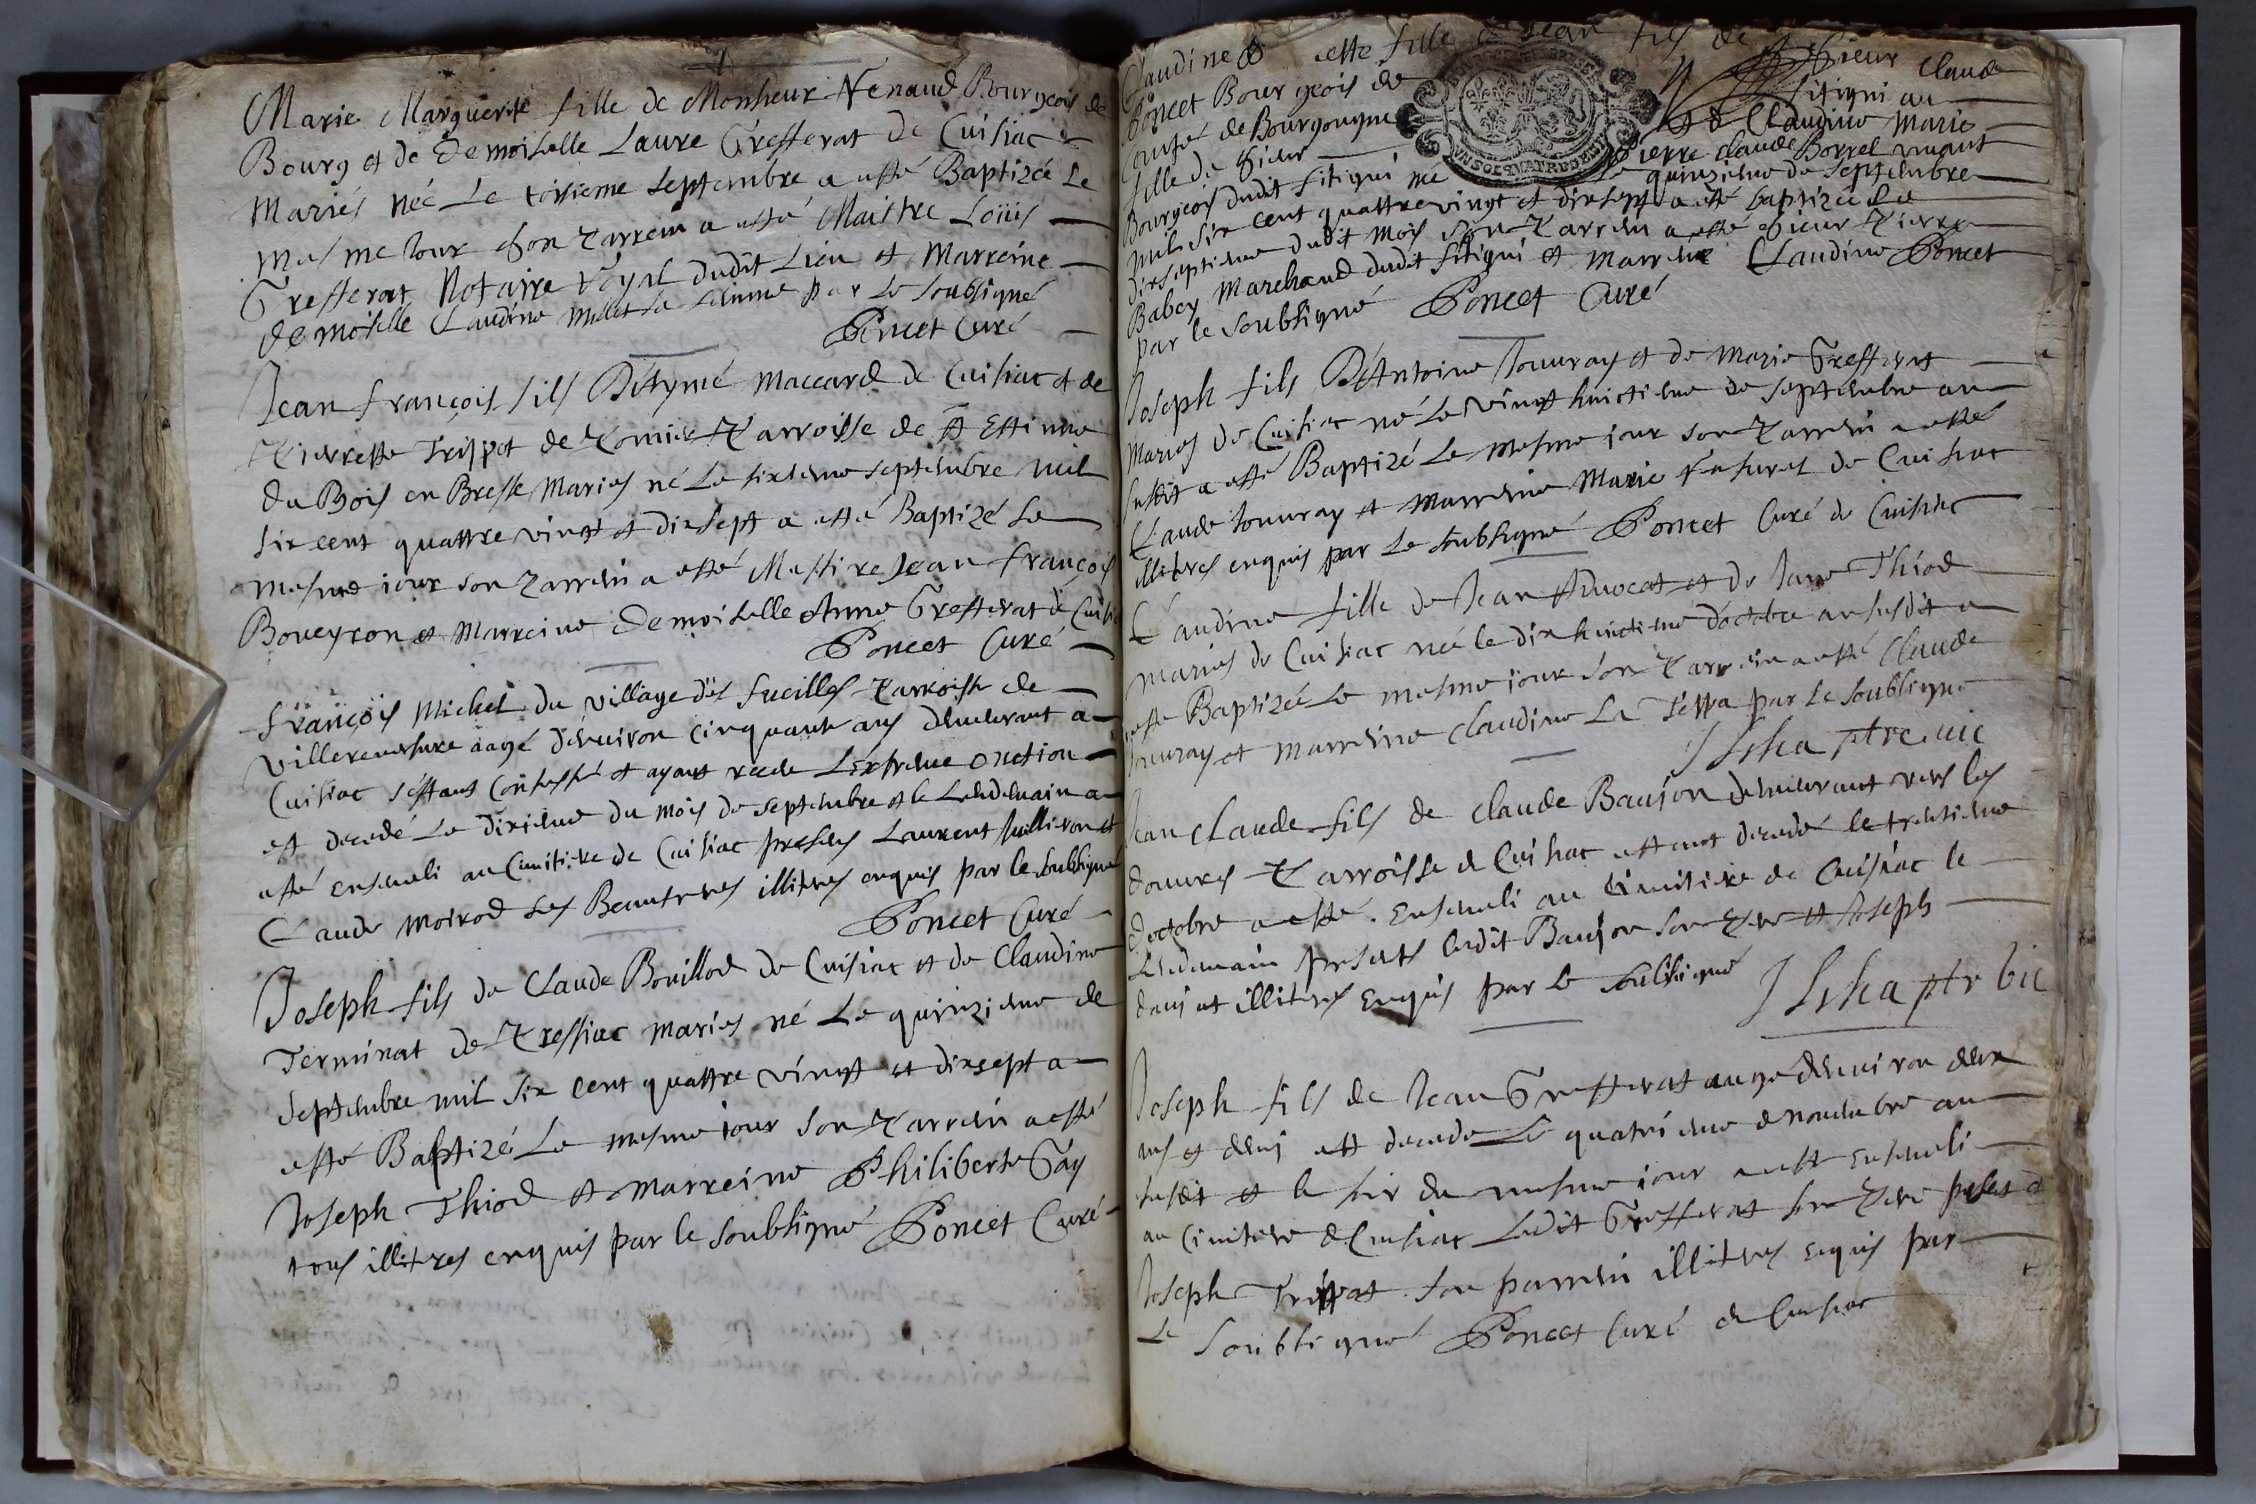 Marie Marguerite fille de Monsieur Renaud Bourgeois de
Bourg et de Demoiselle Laure Grefferat de Cuisiac
Mariés née Le troisieme Septembre a esté Baptizée Le
mesme Jour Son Parrein a esté Maistre Loüis
Grefferat Notaire Royal dudit Lieu et Marreine
demoiselle Claudine Millet sa femme par Le Soubsigné
Poncet Curé
Jean françois fils D'Etyné Maccard de Cuisiac et de
Pierrette Trippot de Parroisse de St Estienne
du Bois en Bresse Mariés né Le sixieme septembre mil
six cent quattre vingt et dixsept a esté Baptizé Le
mesme iour son Parrein a esté Messire Jean françois
Boveyron et Marreine Demoiselle Anne Grefferat de Cuisiac
Poncet Curé
françois Michel du village des fueilles Parroisse de
villereversure aagé d'environ cinquante ans demeurant a
Cuisiac s'estant Confessé et ayant receu L'extreme onction
est decedé Le dixieme du mois de septembre et le Lendemain a
esté enseveli au Cimitiere de Cuisiac presens Laurent Jullieron et
Claude Moirod ses Beaufreres illitres enquis par le soubsigné
Poncet Curé
Joseph fils de Claude Bouillod de Cuisiac et de Claudine
Terminat de Pressiac mariés né Le quinzieme de
septembre mil six cent quattre vingt et dixsept a
esté Baptizé Le mesme iour son Parrein a esté
Joseph Thiod et marreine Philiberte Gay
tous illitres enquis par le soubsigné Poncet Curé
Claudine fille de Jean fils de Sieur Claude
Poncet Bourgeois de fitigni au
Comté de Bourgougne et de Claudine Marie
fille de Sieur Pierre Claude Borrel vivant
Bourgeois dudit fitigni née Le quinzieme de Septembre
mil six cent quattre vingt et dixsept a esté baptizée Le
dixseptieme dudit mois son Parrein a esté Sieur Pierre
Babey Marchand dudit fitigni et Marreine Claudine Poncet
par le soubsigné Poncet Curé
Joseph fils D'Antoine Jouvray et de Marie Grefferat
Mariés de Cuisiac né Le vingt huictieme de septembre an
susdit a esté Baptizé Le mesme jour son Parrein a esté
Claude Jouvray et Marreine Marie de Cuisiac
illitres enquis par Le soubsigné Poncet Curé de Cuisiac
Claudine fille de Jean Advocat et de Jane Thiod
mariés de Cuisiac née le dix huictieme d'octobre an susdit a
esté Baptizée Le mesme jour son Parrein a esté Claude
Jouvray et Marreine Claudine La Teppa par Le soubsigné
ptre vic
Jean Claude fils de Claude Baujon demeurant vers les
douvres Parroisse de Cuisiac estant decedé le trentieme
d'octobre a esté Enseveli au Cimitiere de Cuisiac le
Lendemain presents ledit Baujon son Pere et Joseph
illitres Enquis par Le soubsigné
ptr vic
Joseph fils de Jean Grefferat aagé d'environ deux
ans et demj est decedé Le quatrieme de novembre an
susdit et le soir du mesme jour a esté Enseveli
au Cimitiere de Cuisiac Ledit Grefferat son Pere present et
Joseph son parrein illitres Enquis par
Le Soubsigné Poncet Curé de Cuisiac